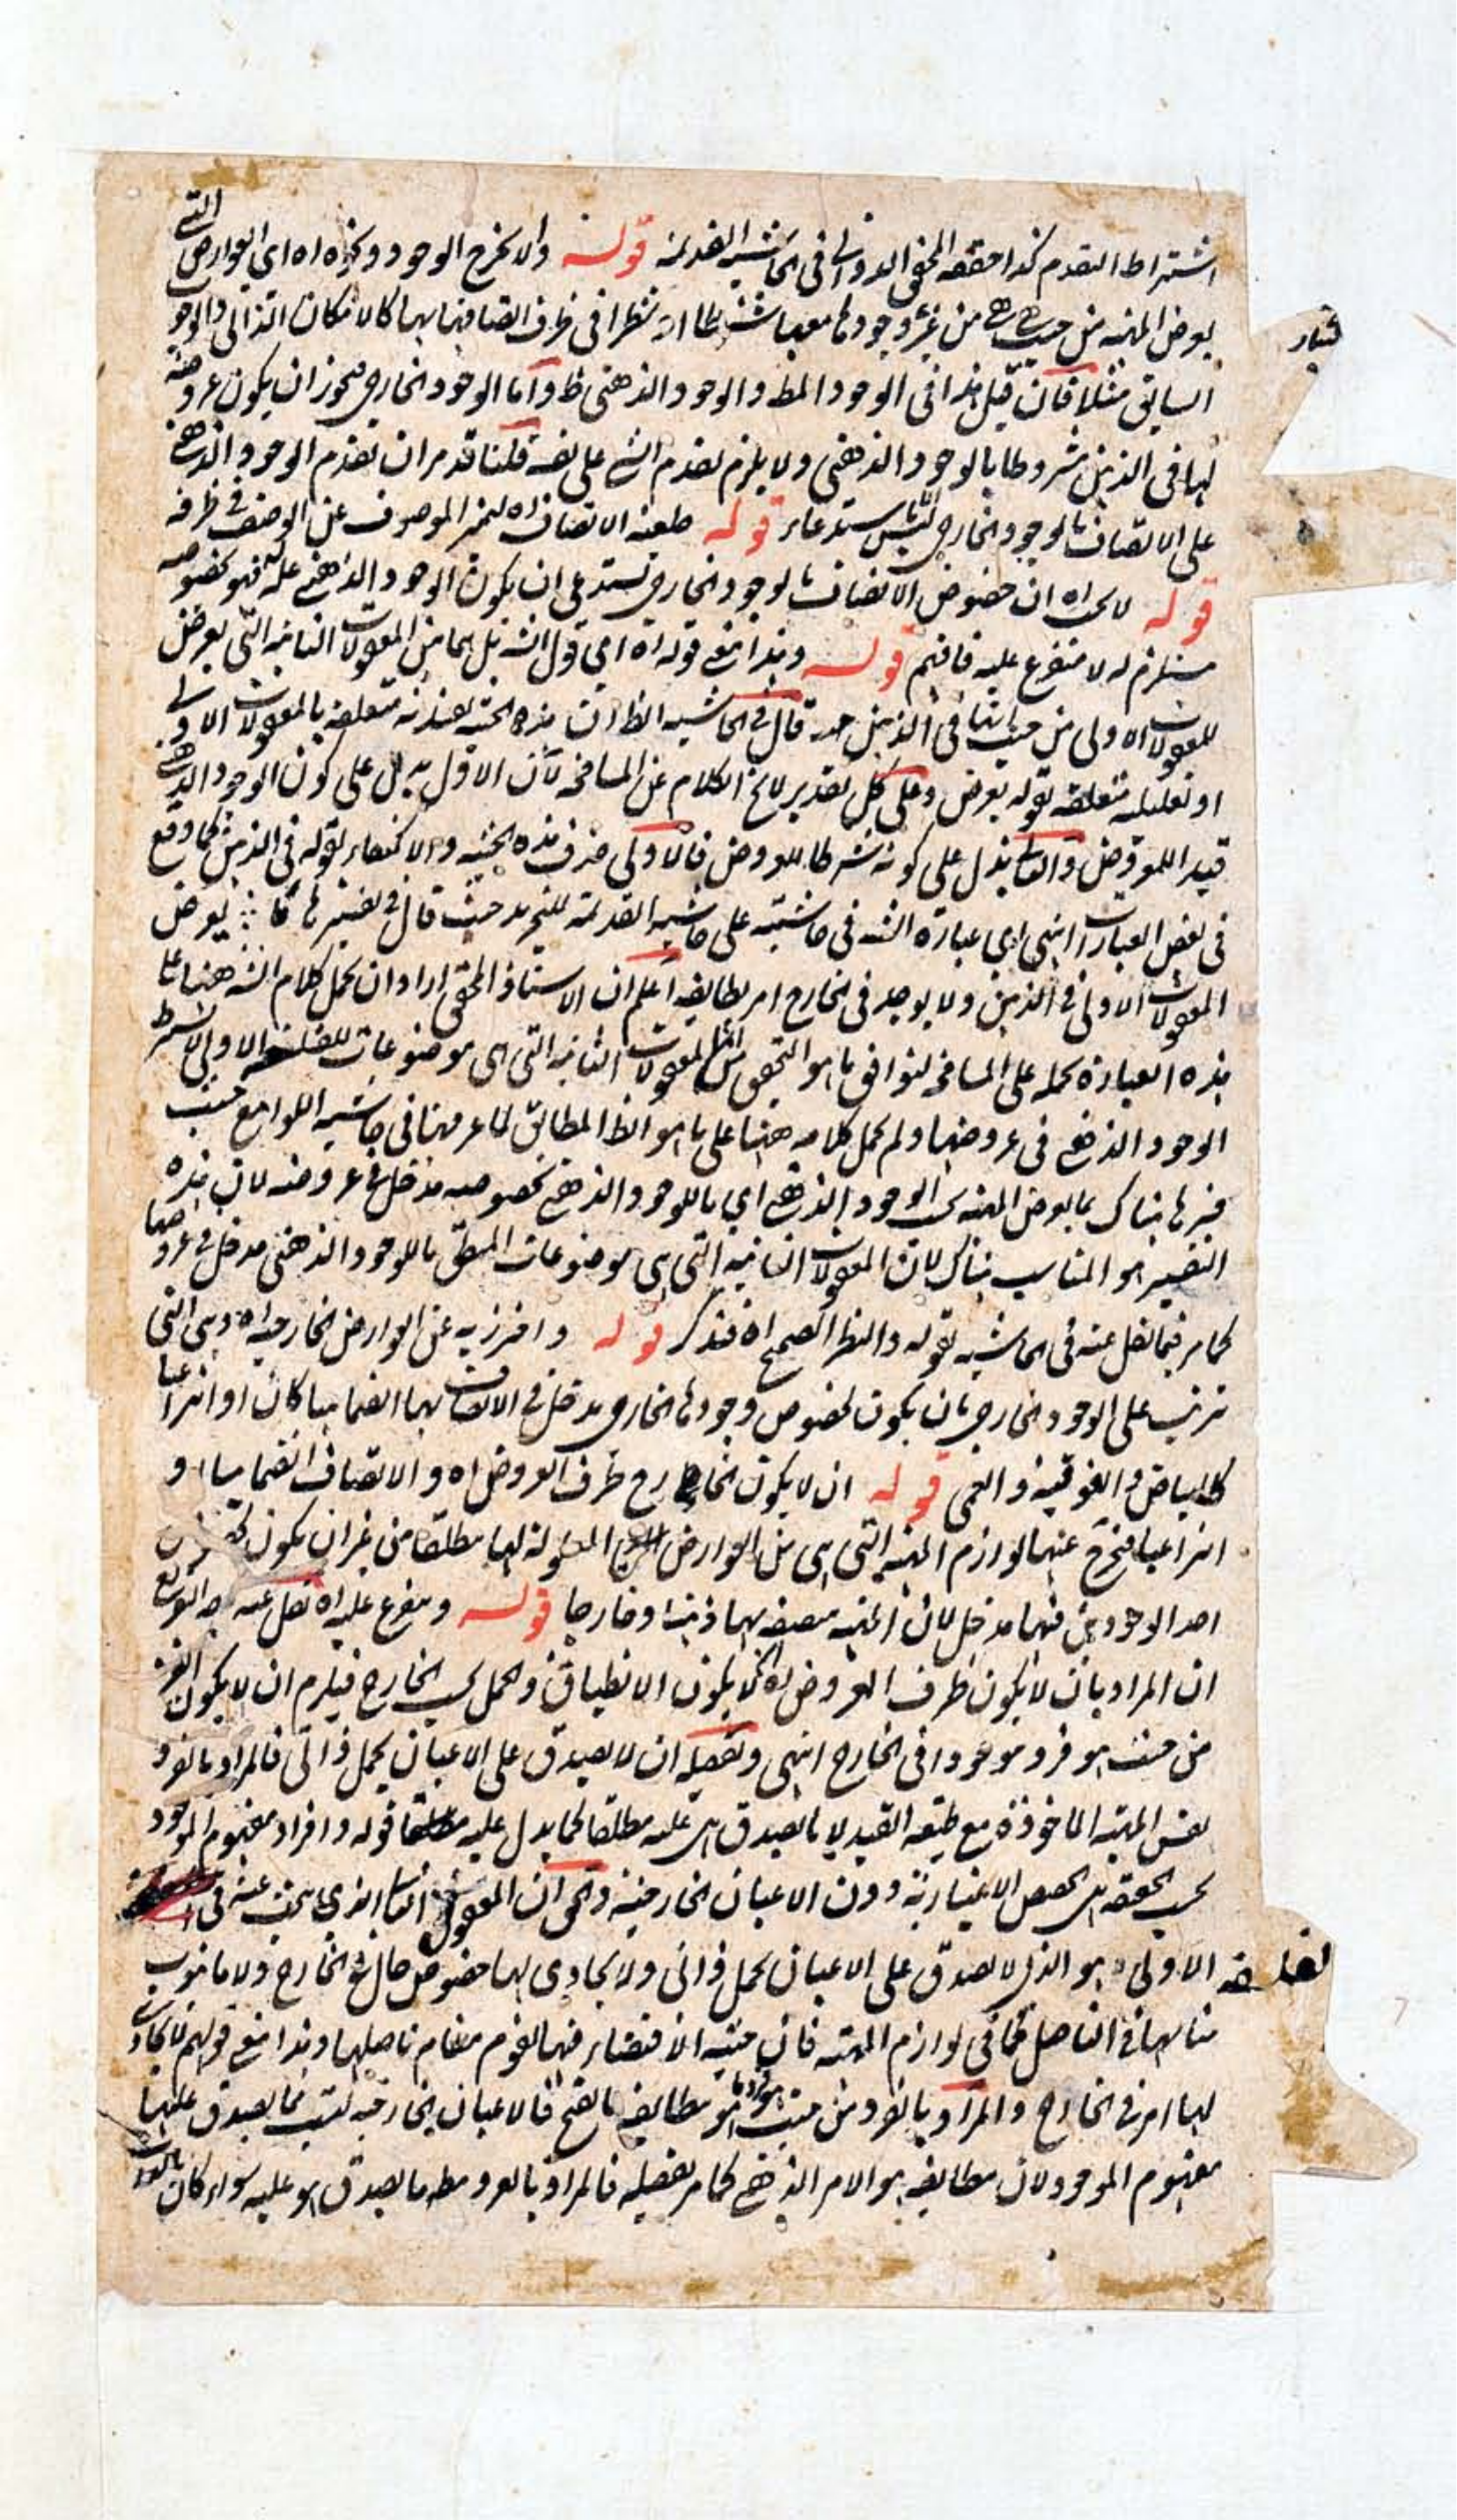 اشتراط التقدم كذا حققه المحقق الدواني فى الحاشية القديمة قوله والا لخرج الوجود ونحوه اه اي العوارض التي
يعرض المهية من حيث هي من غير وجودها معها شرطا او شطرا فى ظرف اتصافها بها كالامكان الذاتى والوجود
السابق مثلا فان قيل هذا فى الوجود المط والوجود الذهنى ظ واما الوجود الخارجى فيجوز ان يكون عروضه
لها فى الذهن مشروطا بالوجود الذهنى ولا يلزم تقدم الشي على نفسه قلنا قد مر ان تقدم الوجود الذهني
على الاتصاف بالوجود الخارجى ليس باستدعاء قوله طبيعة الاتصاف اه لتميز الموصوف عن الوصف في ظرفه
قوله لا بحث اه ان خصوص الاتصاف بالوجود الخارجى تستدعى ان يكون الوجود الذهني علة له فهو بخصوصه
مستلزم له لا متفرع عليه فافهم قوله وبهذا انتفع قوله اه اي قول الش بل هما من المعقولات الثانية التى يعرض
للمعقولات الاولى من حيث انها فى الذهن قال في الحاشية الظ ان هذه الحيثية تقييدية متعلقة بالمعقولات الاولى
او تعليلية متعلقة بقوله يعرض وعلى كل تقدير لا يخ الكلام عن المسامحة لان الاول يدل على كون الوجود الذهني
قيدا للمعروض والثانى يدل على كونه شرطا للعروض فالاولى حذف هذه الحيثية والاكتفاء بقوله فى الذهن كما وقع
فى بعض العبارات انتهى اي عبارة الش فى حاشيته على حاشية القديمة للتجريد حيث قال في تفسيرها ما يعرض
المعقولات الاولى في الذهن ولا يوجد فى الخارج امر يطابقه اعلم ان الاستاذ المحقق اراد ان يحمل كلام الش ههنا على
هذه العبارة بحمله على المسامحة ليوافق ما هو التحقيق من ان المعقولات الثانية التى هى موضوعات للقضايا الاولى لا يشترط
الوجود الذهني فى عروضها ولم يحمل كلامه ههنا على ما هو الظ المطابق لما عرفها فى حاشية اللوامع حيث
فسرها هناك بما يعرض المهية بحسب الوجود الذهني اي ما للوجود الذهني بخصوصه مدخل في عروضه لان هذه
التفسير هو المناسب هناك لان المعقولات الثانية التى هى موضوعات المنطق ما للوجود الذهنى مدخل في عروضها
كما مر فيما نقل عنه فى الحاشية بقوله والنظر الصحيح اه فتذكر قوله واحترز به عن العوارض الخارجية اه وهى التى
ترتب على الوجود الخارجى بان يكون لخصوص وجودها الخارجى مدخل في الاتصاف بها انضماميا كان او انتزاعيا
كالبياض والفوقية والعمى قوله ان لا يكون الخارج ظرف العروض اه والاتصاف انضماميا او
انتزاعيا فيخرج عنها لوازم المهية التى هى من العوارض المعلولة لها مطلقا من غير ان يكون لخصوص
احد الوجودين فيها مدخل لان المهية متصفة بها ذهنا وخارجا قوله ويتفرع عليه اه نقل عنه وجه التفريع
ان المراد بان لا يكون ظرف العروض اه ان لا يكون الانطباق والحمل بحسب الخارج فيلزم ان لا يكون الفرد
من حيث هو فرد موجودا فى الخارج انتهى وتفصيله ان لا يصدق على الاعيان بحمل ذاتى فالمراد بالفرد
نفس المهية الماخوذة مع طبيعة القيد لا ما يصدق هى عليه مطلقا كما يدل عليه قوله وافراد مفهوم الموجود
بحسب الحقيقة هى الحصص الاعتبارية دون الاعيان الخارجية والحق ان المعقول الثانى الذى يبحث عنه فى
الفلسفة الاولى هو الذى لا يصدق على الاعيان بحمل ذاتى ولا يحاذى لها خصوص حال في الخارج ولا ما ينوب
منابها في التاصل كما فى لوازم المهية فان حيثية الاقتضاء فيها يقوم مقام تاصلها وبهذا انتفع قولهم لا يحاذى
لها امر فى الخارج والمراد بالفرد من حيث هو فردها هو مطابقه بالفتح فالاعيان الخارجية ليست مما يصدق عليها
مفهوم الموجود لان مطابقه هو الامر الذهني كما مر تفصيله فالمراد بالفرد مطلقا ما يصدق هو عليه سواء كان بالذات